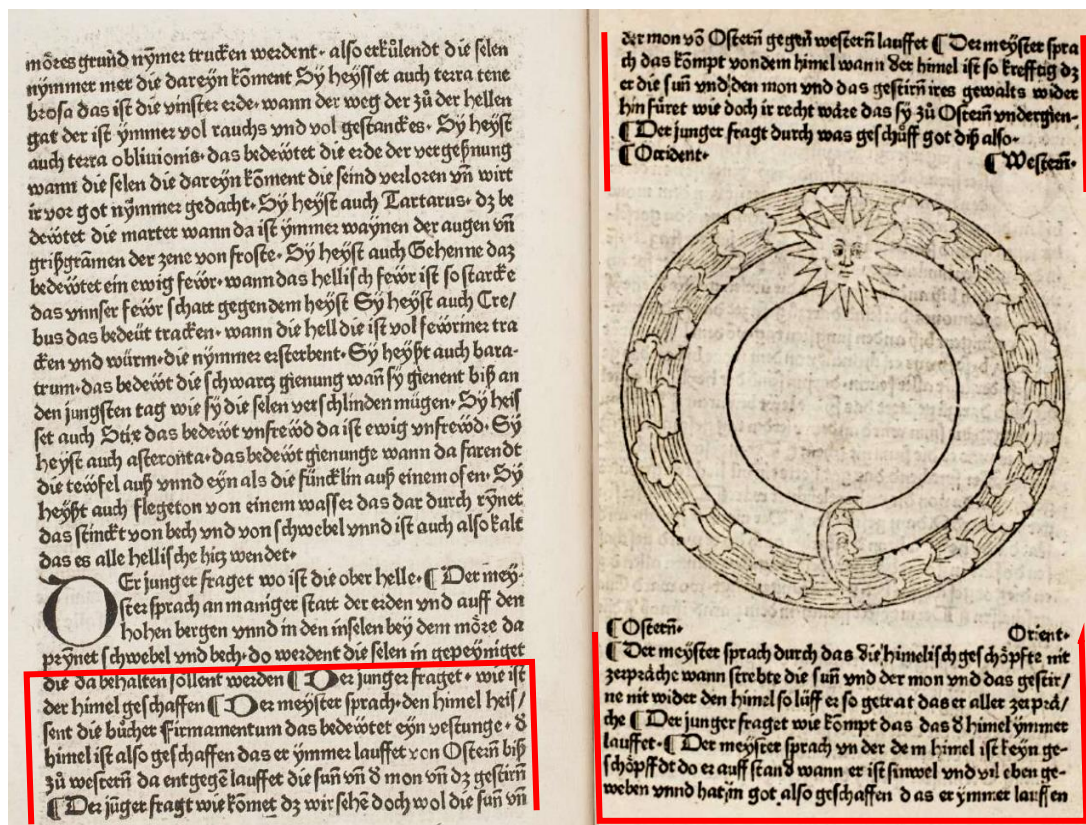 mo̊res grund nÿmer trucken werdent· also erku̇lendt die selen
nÿmmer mer die dareÿn ko̅ment Sÿ heÿsset auch terra tene
brosa das ist die vinster erde· wann der weg der zů der hellen
gat der ist ÿmmer vol rauchs vnd vol gestanckes· Sÿ heÿst
auch terra obliuionis· das bedeẅtet die erde der vergeßnung
wann die selen die dareÿn ko̅ment die seind verloren vn̅ wirt
ir vor got nÿmmer gedacht· Sÿ heÿst auch Tartarus· dz be
deẅtet die marter wann da ist ÿmmer waÿnen der augen vn̅
grißgrämen der zene von froste· Sÿ heÿst auch Gehenne daz
bedeẅtet ein ewig feẅr· wann das hellisch feẅr ist so starcke
das vnnser feẅr schatt gegen dem heÿst Sÿ heÿst auch Cre/
bus das bedeüt tracken· wann die hell die ist vol feẅriner tra
cken vnd würm· die nÿmmer ersterbent· Sÿ heÿßt auch bara-
trum· das bedeẅt die schwarcz gienung wan̅ sÿ gienent biß an
den jungsten tag wie sÿ die selen verschlinden mügen· Sÿ heis
set auch Stix das bedeẅt vnfreẅd da ist ewig vnfreẅd· Sÿ
heÿst auch asteronta· das bedeẅt gienunge wann da farendt
die teẅfel auß vnnd eÿn als die füncklin auß einem ofen· Sÿ
heÿßt auch flegeton von einem wasser das dar durch rÿnet
das stinckt von bech vnd von schwebel vnnd ist auch also kalt
das es alle hellische hicz wendet·
Er junger fraget wo ist die ober helle· ¶ Der meÿ-
ster sprach an maniger statt der erden vnd auff den
hohen bergen vnnd in den inselen beÿ dem mo̊re da
prÿnet schwebel vnd bech· do werdent die selen in gepeÿniget
die da behalten sollent werden ¶ Der junger fraget· wie ist
der himel geschaffen ¶ Der meÿster sprach· den himel heis/
sent die bu̇cher Firmamentum das bedeẅtet eÿn vestunge· d̕
himel ist also geschaffen das er ÿmmer lauffet von Ostern̅ biß
zů western̅ da entgege̅ lauffet die sun̅ vn̅ d̕ mon vn̅ dz gestirn̅
¶ Der ju̅ger fragt wie ko̅met dz wir sehe̅ doch wol die sun̅ vn̅
der mon vo̅ Ostern̅ gegen̅ western̅ lauffet ¶ Der meÿster spra
ch das ko̅mpt von dem himel wann der himel ist so krefftig dz
er die sun̅ vnd den mon vnd das gestirn̅ ires gewalts wider
hin fu̇ret wie doch ir recht wäre das sÿ zů Ostern̅ vndergien-
¶ Der junger fragt durch was geschůff got diß also·
¶ Occident· ¶ Western̅·
¶ Ostern̅· Orient·
¶ Der meÿster sprach durch das die himelisch geschöpfte nit
zerpräche wann strebte die sun̅ vnd der mon vnd das gestir/
ne nit wider den himel so lüff er so getrat das er aller zerprä/
che ¶ Der junger fraget wie kompt das das d̕ himel ÿmmer
lauffet· ¶ Der meÿster sprach vn der dem himel ist keÿn ge-
schöpffdt do er auff stand wann er ist sinwel vnd vil eben ge-
weben vnnd hat jn got also geschaffen das er ÿmmer lauffen